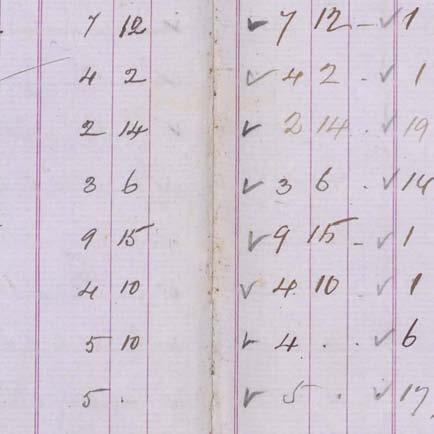 7 12 ✓ 7 12 - ✓ 1
4 2 ✓ 4 2 . ✓ 1
2 14 ✓ 2 14 . ✓ 19
3 6 ✓ 3 6 . ✓ 14
9 15 ✓ 9 15 - ✓ 1
4 10 ✓ 4 10 ✓ 1
5 10 ✓ 4 . . ✓ 6
5 . ✓ 5 . ✓ 17